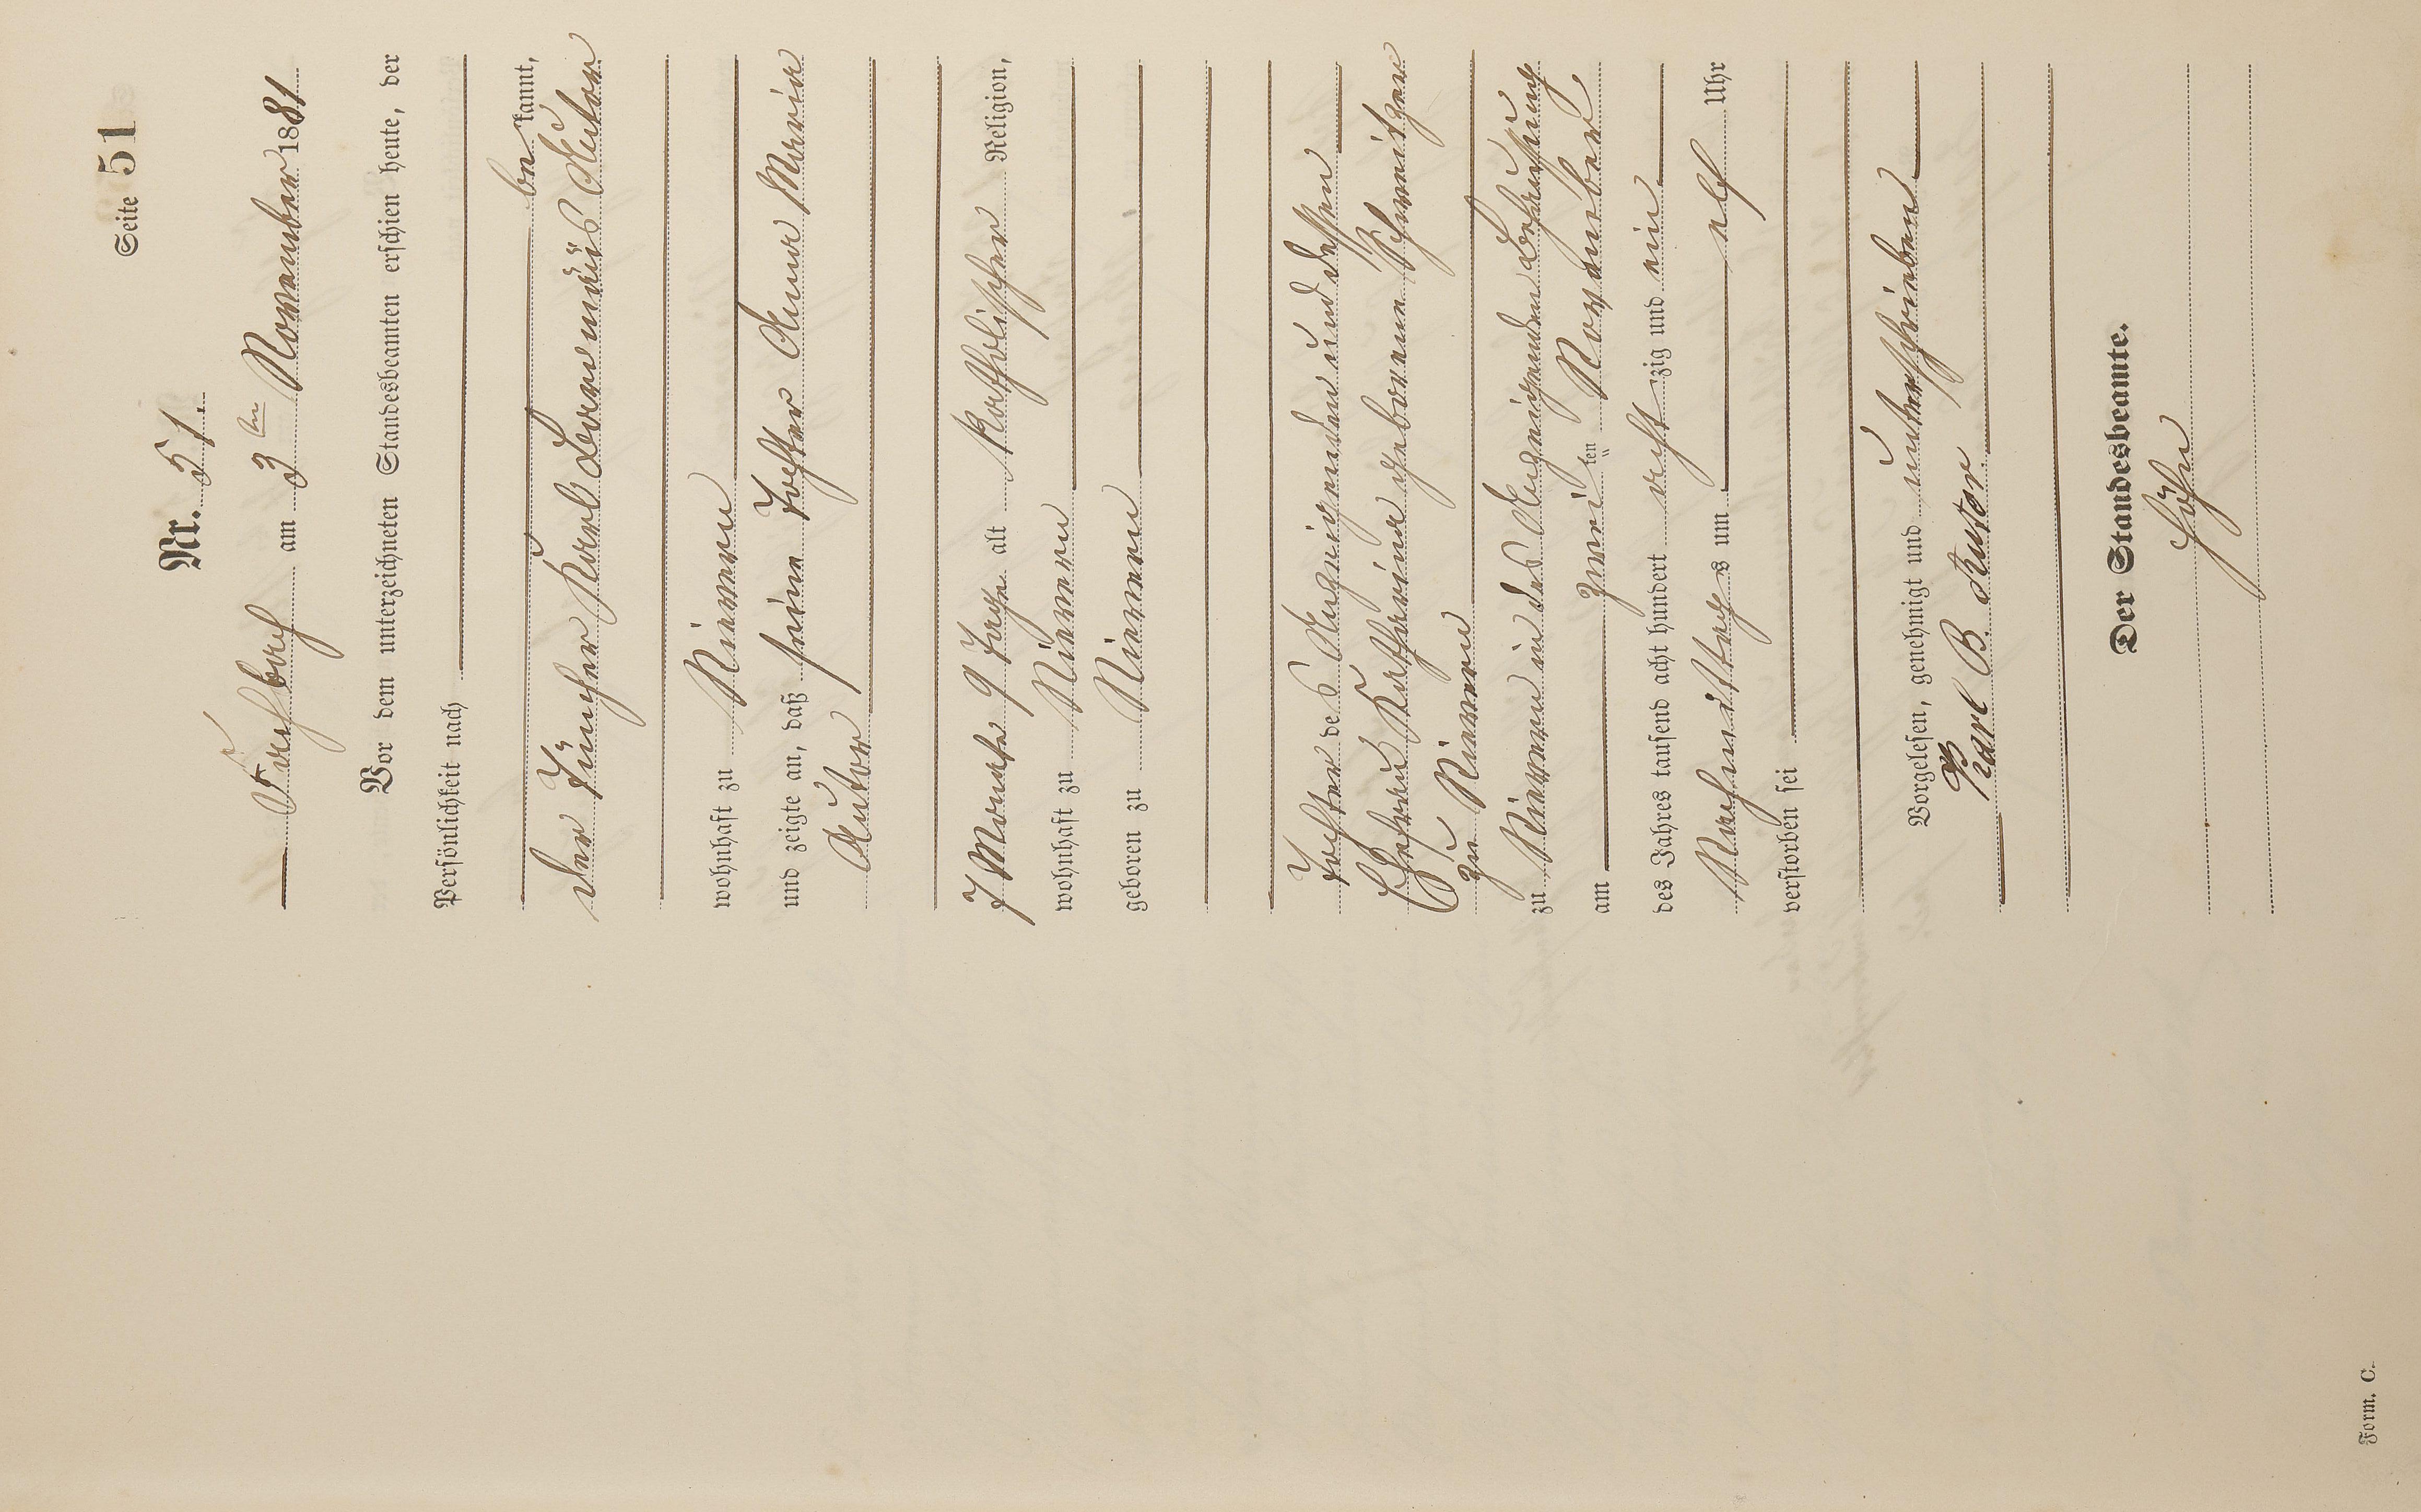 Seite 51
Nr. 51.
Fachbach am 3ten November 1881
Vor dem unterzeichneten Standesbeamten erschien heute, der
Persönlichkeit nach
be kannt,
der Tüncher Karl Bormäus Autor
wohnhaft zu Nievern
und zeigte an, daß seine Tochter Anna Maria
Autor
7 Monate 9 Tage alt katholischer Religion,
wohnhaft zu Nievern
geboren zu Nievern
Tochter des Anzeigenden und dessen
Ehefrau Katharina geborene Schweitzer
zu Nievern
zu Nievern in des Anzeigenden Behausung
am zwei ten November
des Jahres tausend acht hundert acht zig und ein
Nachmittags um elf Uhr
verstorben sei
Vorgelesen, genehmigt und unterschrieben
Karl B. Autor.
Der Standesbeamte.
Höhn
Form. C.